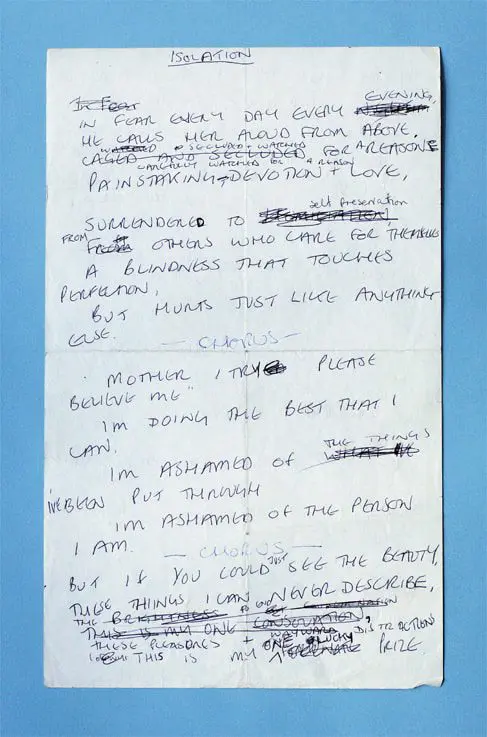 ISOLATION
In Fear
EVENING,
IN FEAR EVERY DAY EVERY
HE CALLS HER ALOUD FROM ABOVE,
WATCHED + SECLUDED + WATCHED
CAGED AND SECLUDED FOR A REASON
CAREFULLY WATCHED FOR A REASON
PAINSTAKING DEVOTION + LOVE,
self preservation
SURRENDERED TO
FROM OTHERS WHO CARE FOR THEMSELVES
A BLINDNESS THAT TOUCHES
PERFECTION,
BUT HURTS JUST LIKE ANYTHING
ELSE.
— CHORUS —
MOTHER I TRY PLEASE
BELIEVE ME"
IM DOING THE BEST THAT I
CAN.
THE THINGS
IM ASHAMED OF WHAT IVE
I'VE BEEN PUT THROUGH
IM ASHAMED OF THE PERSON
I AM.
— CHORUS —
JUST
BUT IF YOU COULD SEE THE BEAUTY,
THESE THINGS I CAN NEVER DESCRIBE,
THE BRIGHTNESS
THIS IS MY ONE CONSOLATION,
THESE PLEASURES + WAYWARD DISTRACTIONS
THIS IS MY ONE LUCKY PRIZE.